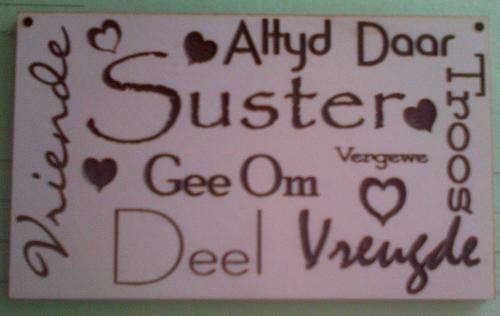 Vriende
Altyd Daar
Suster
Troos
Vergewe
Gee Om
Deel
Vreugde